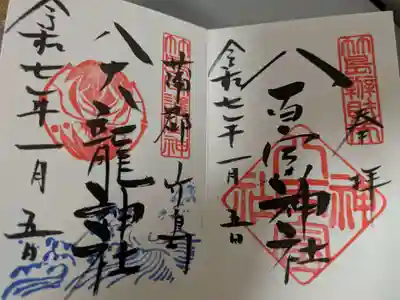 竹島辨財天
奉拝
八百富神社
令和七年一月五日
蒲郡 竹島
八大龍神社
令和七年一月五日